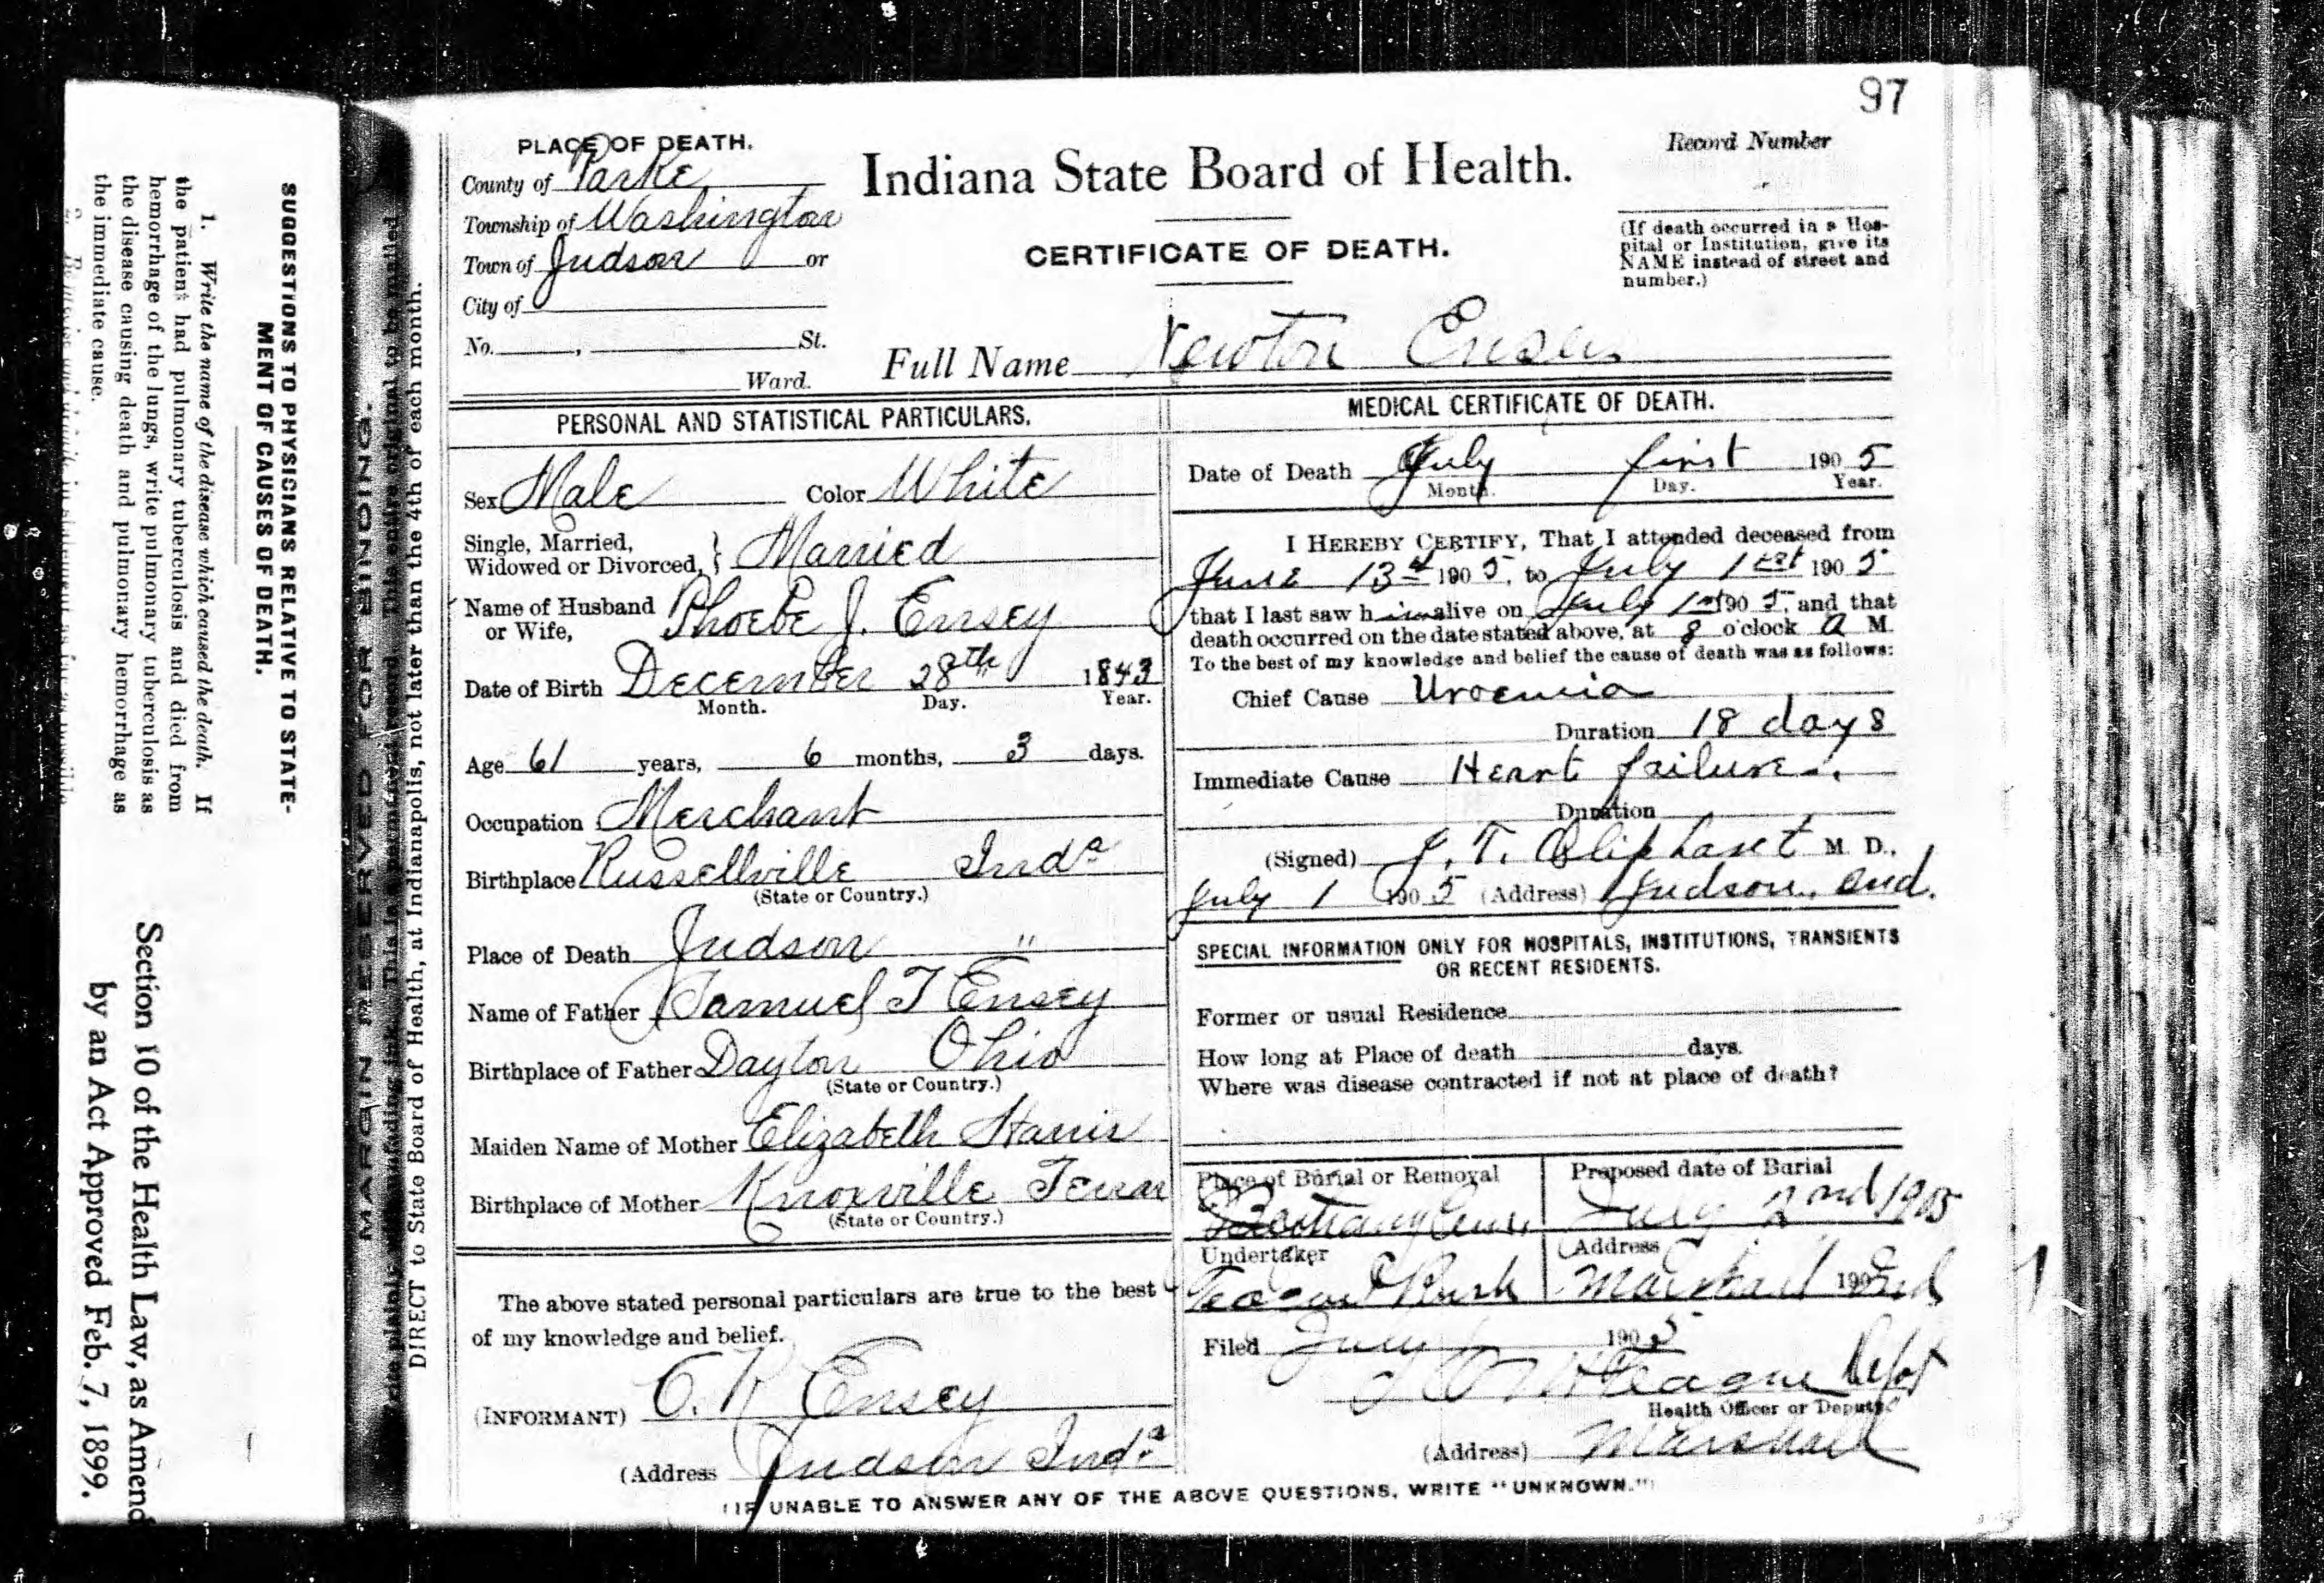 97
PLACE OF DEATH.
County of Parke
Township of Washington
Town of Judson or
City of
No. , St.
Ward.
Indiana State Board of Health.
CERTIFICATE OF DEATH.
Record Number
(If death occurred in a Hos-
pital or Institution, give its
NAME instead of street and
number.)
Full Name Newton Ensey
PERSONAL AND STATISTICAL PARTICULARS.
Sex Male Color White
Single, Married,
Widowed or Divorced, } Married
Name of Husband
or Wife, Phoebe J. Ensey
Date of Birth December 28th 1843
Month. Day. Year.
Age 61 years, 6 months, 3 days.
Occupation Merchant
Birthplace Russellville Inda
(State or Country.)
Place of Death Judson "
Name of Father Samuel T Ensey
Birthplace of Father Dayton Ohio
(State or Country.)
Maiden Name of Mother Elizabeth Harris
Birthplace of Mother Knoxville Tenn
(State or Country.)
The above stated personal particulars are true to the best
of my knowledge and belief.
(INFORMANT) O. R Ensey
(Address Judson Inda
MEDICAL CERTIFICATE OF DEATH.
Date of Death July first 1905
Month. Day. Year.
I HEREBY CERTIFY, That I attended deceased from
June 13th 1905, to July 1st 1905
that I last saw him alive on July 1st 1905, and that
death occurred on the date stated above, at 8 o'clock A M.
To the best of my knowledge and belief the cause of death was as follows:
Chief Cause Uroemia
Duration 18 days
Immediate Cause Heart failure.
Duration
(Signed) J. T. Oliphant M. D.,
July 1 1905 (Address) Judson, Ind.
SPECIAL INFORMATION ONLY FOR HOSPITALS, INSTITUTIONS, TRANSIENTS
OR RECENT RESIDENTS.
Former or usual Residence
How long at Place of death days.
Where was disease contracted if not at place of death?
Place of Burial or Removal
Proposed date of Burial
July 2nd 1905
Undertaker
Address
Marshall 190 Ind
Filed July 1905
Teague Dept
Health Officer or Deputy
(Address) Marshall
(IF UNABLE TO ANSWER ANY OF THE ABOVE QUESTIONS, WRITE "UNKNOWN.")
MARGIN RESERVED FOR BINDING.
DIRECT to State Board of Health, at Indianapolis, not later than the 4th of each month.
SUGGESTIONS TO PHYSICIANS RELATIVE TO STATE-
MENT OF CAUSES OF DEATH.
1. Write the name of the disease which caused the death. If
the patient had pulmonary tuberculosis and died from
hemorrhage of the lungs, write pulmonary tuberculosis as
the disease causing death and pulmonary hemorrhage as
the immediate cause.
Section 10 of the Health Law, as Amend
by an Act Approved Feb. 7, 1899.